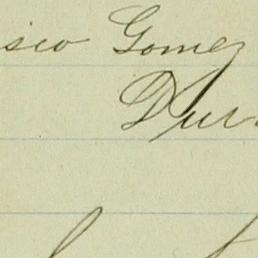 sco Gomez
Dur